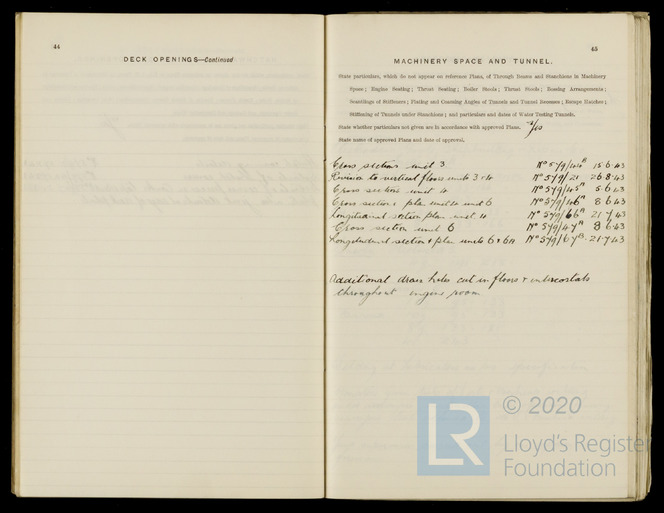 44
DECK OPENINGS—Continued
45
MACHINERY SPACE AND TUNNEL.
State particulars, which do not appear on reference Plans, of Through Beams and Stanchions in Machinery
Space; Engine Seating; Thrust Seating; Boiler Stools; Thrust Stools; Bossing Arrangements;
Scantlings of Stiffeners; Plating and Coaming Angles of Tunnels and Tunnel Recesses; Escape Hatches;
Stiffening of Tunnels under Stanchions; and particulars and dates of Water Testing Tunnels.
State whether particulars not given are in accordance with approved Plans. Yes
State name of approved Plans and date of approval.
Cross sections unit 3 No 579/44A 15.6.43
Revision to vertical floors units 3 & 4 No 579/21 26.8.43
Cross sections unit 4 No 579/45A 5.6.43
Cross sections plan unit 4 and 6 No 579/46A 8.6.43
Longitudinal section plan unit 4 No 579/66A 21.7.43
Cross section unit 6 No 579/47A 8.6.43
Longitudinal section & plan units 6 & 6A No 579/67B 21.7.43
Additional drain holes cut in floors & intercostals
throughout engine room
LR
© 2020
Lloyd's Register
Foundation